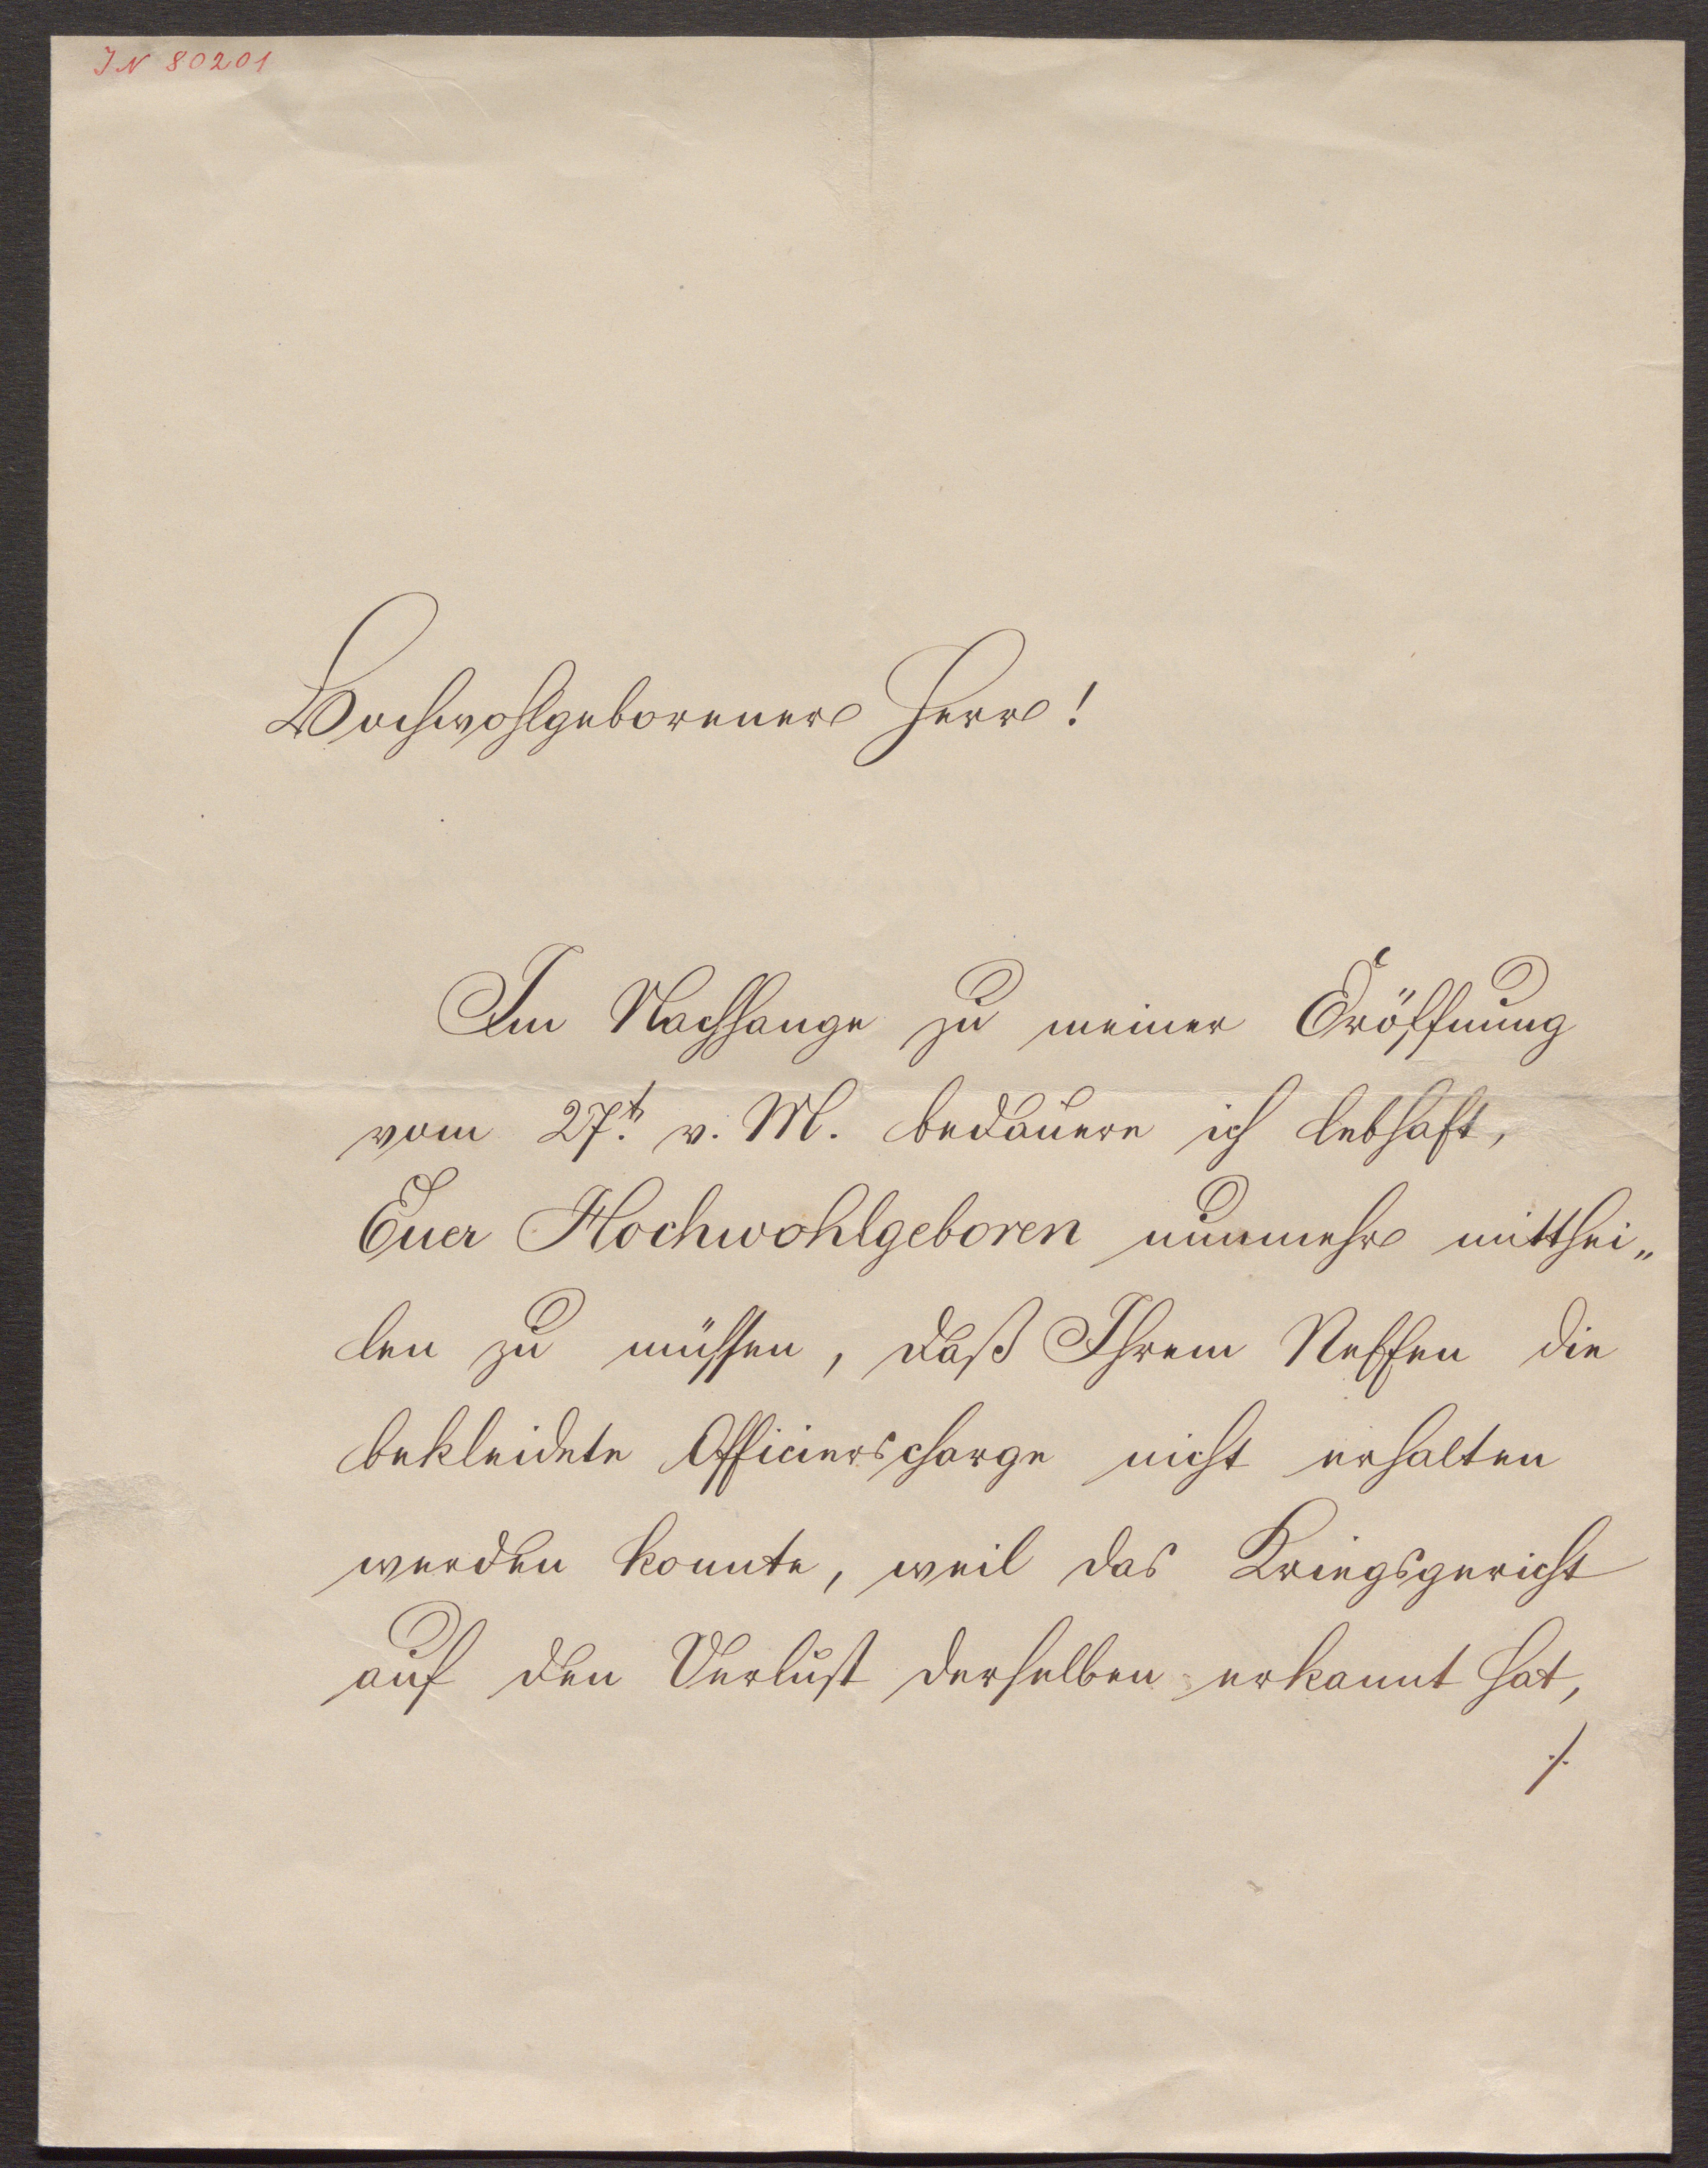 IN 80201
Hochwohlgeborener Herr!
Im Nachhange zu meiner Eröffnung
vom 27.t v. M. bedauere ich lebhaft,
Euer Hochwohlgeboren nunmehr mitthei„
len zu müssen, daß Ihrem Neffen die
bekleidete Officierscharge nicht erhalten
werden konnte, weil das Kriegsgericht
auf den Verlust derselben erkannt hat,
./.